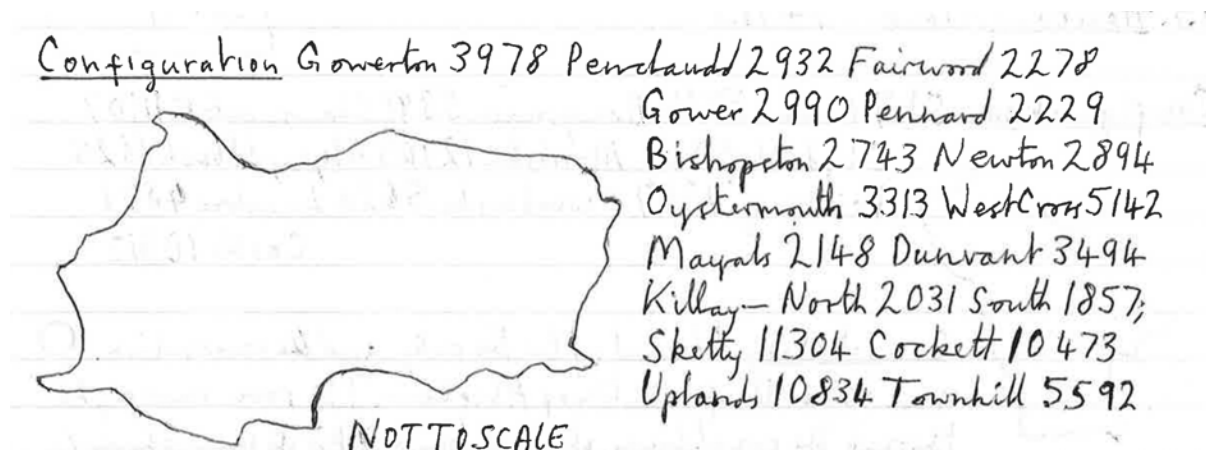 Configuration Gowerton 3978 Penclawdd 2932 Fairwood 2278
Gower 2990 Pennard 2229
Bishopston 2743 Newton 2894
Oystermouth 3313 West Cross 5142
Mayals 2148 Dunvant 3494
Killay - North 2031 South 1857;
Sketty 11304 Cockett 10473
Uplands 10834 Townhill 5592
NOT TO SCALE